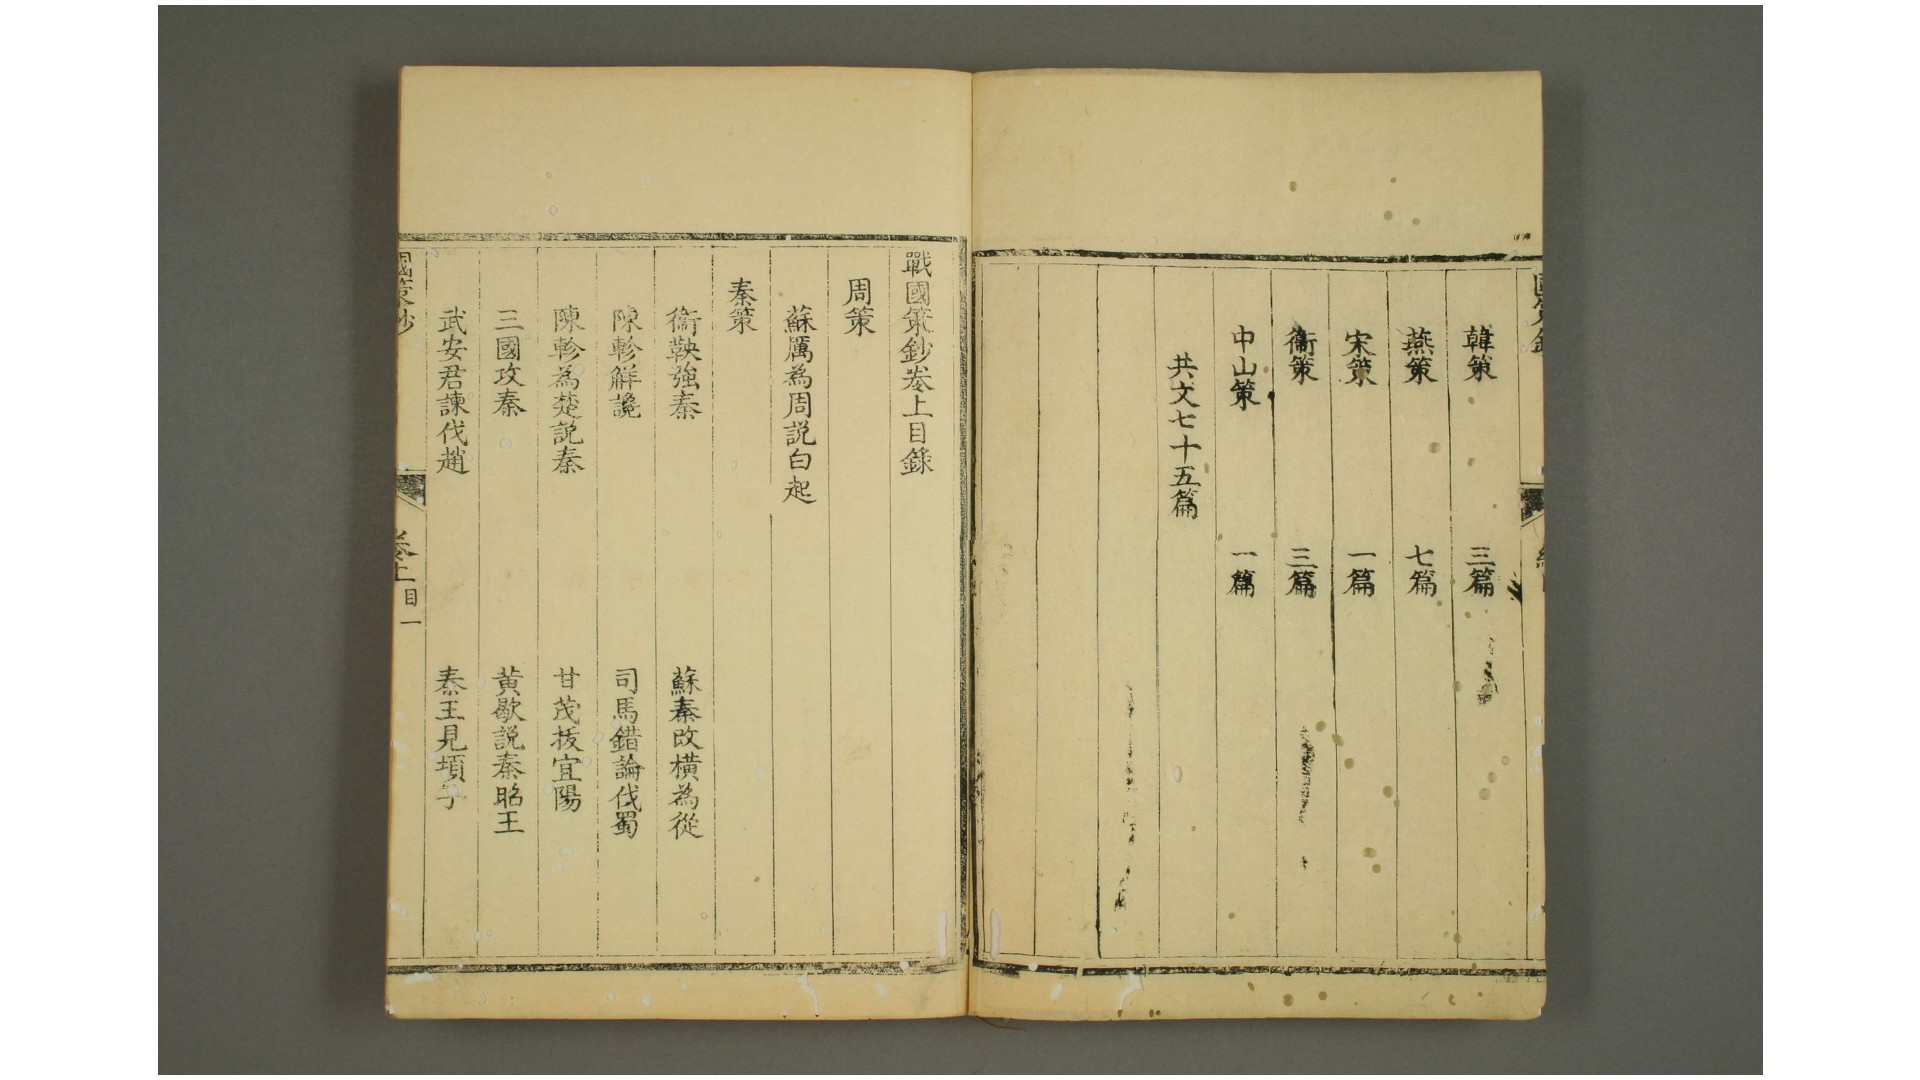 韓策 三篇
燕策 七篇
宋策 一篇
衞策 三篇
中山策 一篇
共文七十五篇
戰國策鈔卷上目錄
周策
蘇厲為周説白起
秦策
衞鞅強秦 蘇秦改橫為從
陳軫解讒 司馬錯論伐蜀
陳軫為楚説秦 甘茂拔宜陽
三國攻秦 黄歇説秦昭王
武安君諫伐趙 秦王見頓子
國策鈔 卷上目一